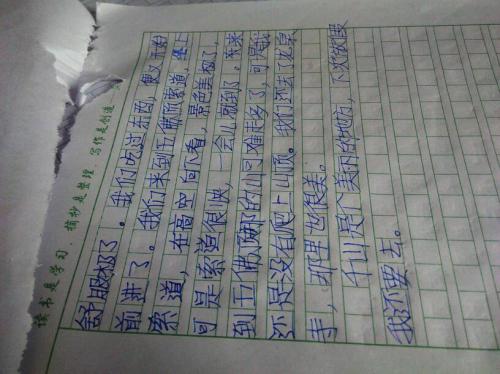 读书是学习，摘抄是整理，写作是创造
舒服极了。我们吃过东西，便又开始
前进了。我们来到五佛顶索道，坐上
索道，在高空向下看，景色美极了，
可是索道很快，一会儿就到了。本来
到五佛顶那的山可难走多了，可是我
还是没有爬上山顶。我们还去了龙泉
寺，那里也很美。
千山是个美丽的地方，下次放假
我还要去。